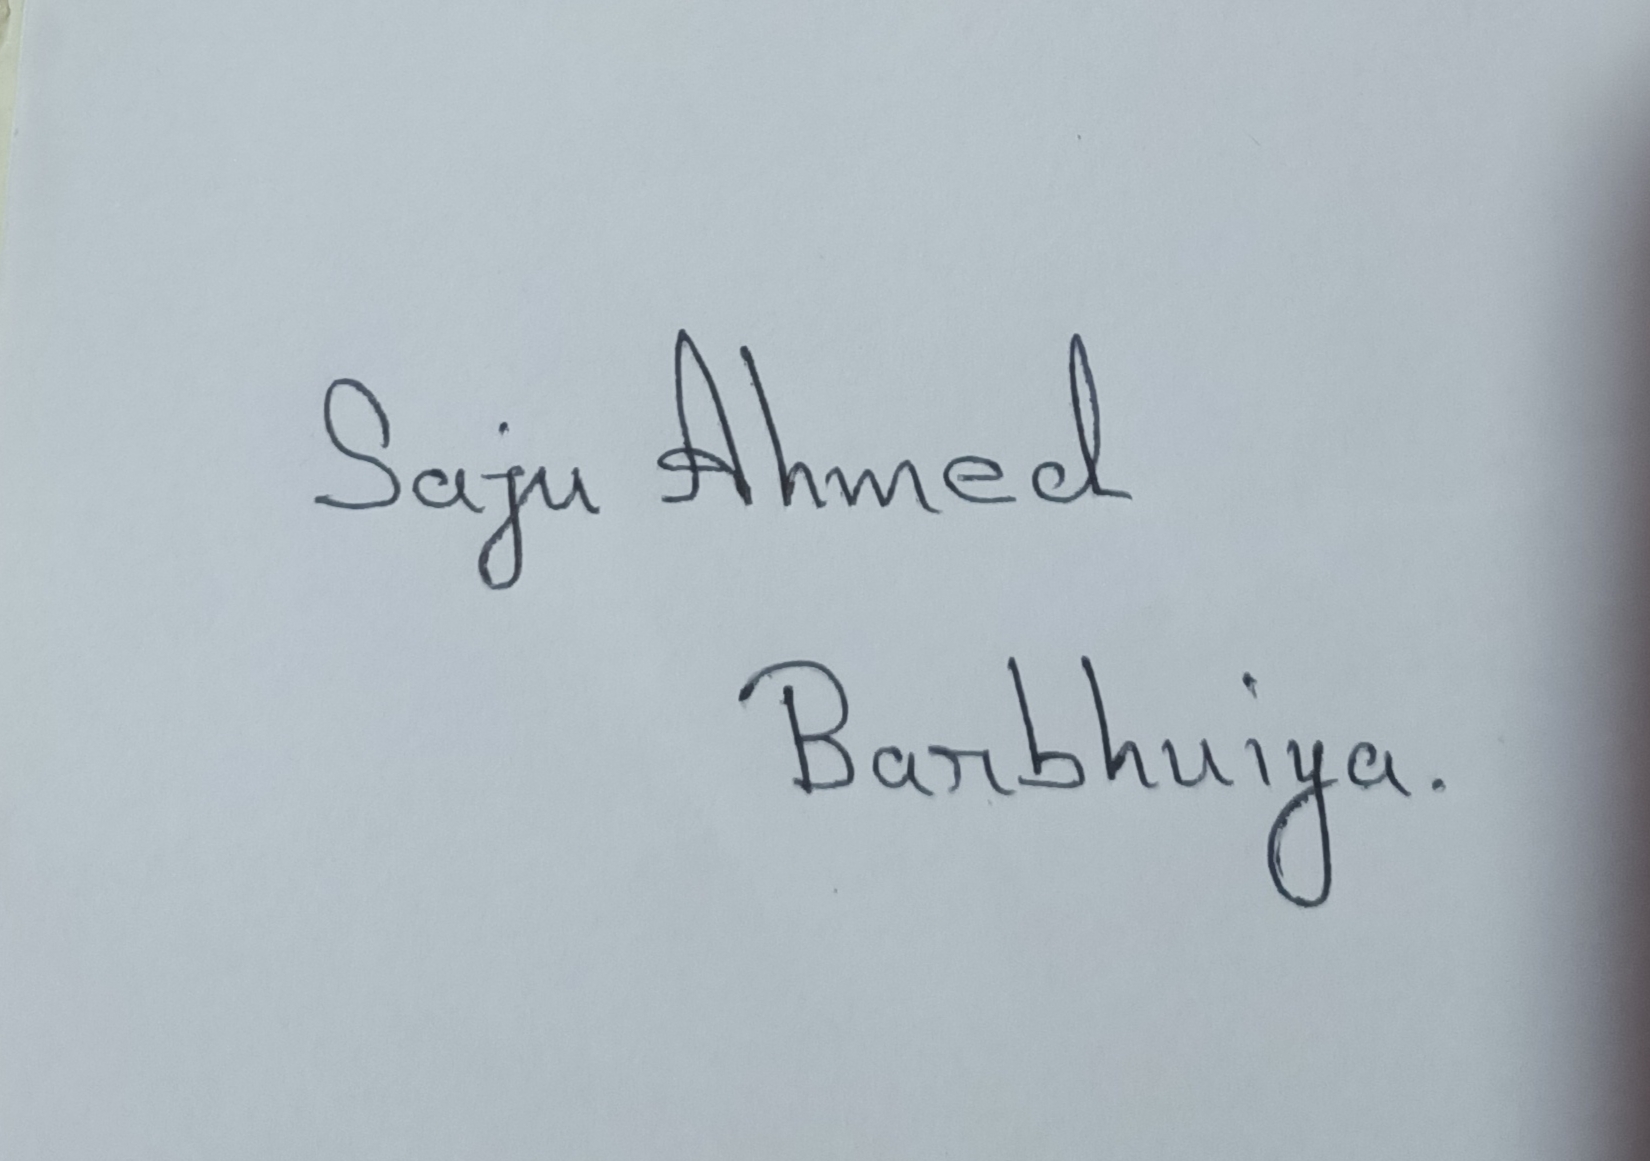 Saju Ahmed
Barbhuiya.